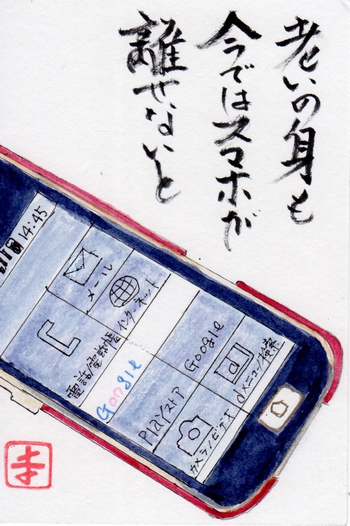 老いの身も
今ではスマホが
離せないと
14:45
メール
インターネット
電話/電話帳
Google
Google
Playストア
dメニュー/検索
カメラ/ビデオ
ま